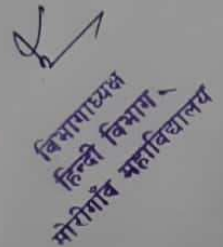 विभागाध्यक्ष
हिन्दी विभाग -
मोरीगाँव महाविद्यालय